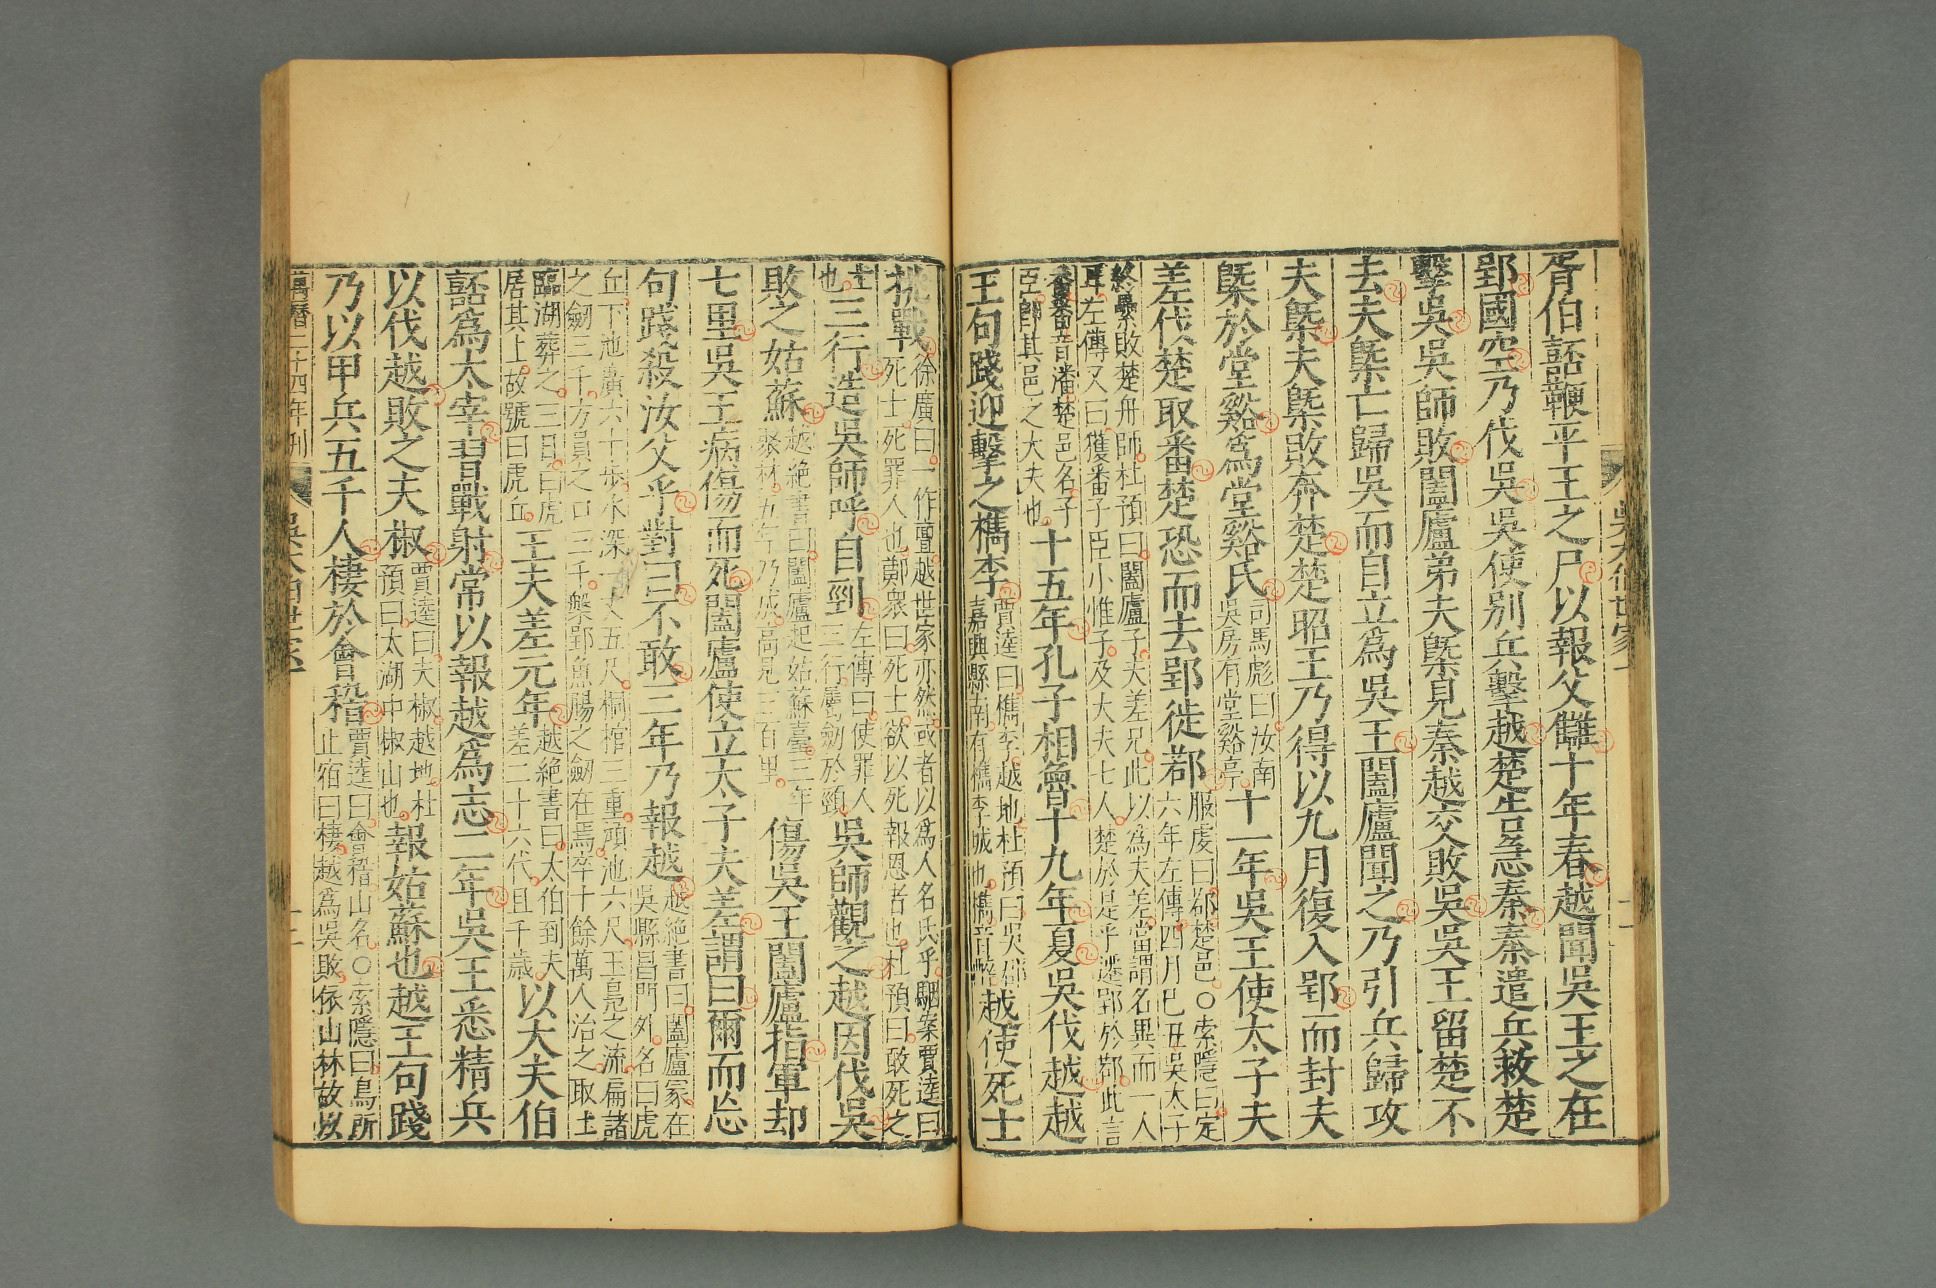 胥伯嚭鞭平王之尸以報父讎十年春越聞吳王之在
郢國空乃伐吳吳使别兵擊越楚告急秦秦遣兵救楚
擊吳吳師敗闔廬弟夫槩見秦越交敗吳吳王留楚不
去夫槩亡歸吳而自立爲吳王闔廬聞之乃引兵歸攻
夫槩夫槩敗奔楚楚昭王乃得以九月復入郢而封夫
槩於堂谿爲堂谿氏司馬彪曰汝南吳房有堂谿亭十一年吳王使太子夫
差伐楚取番楚恐而去郢徙鄀服虔曰鄀楚邑○索隱曰定六年左傳四月已丑吳太子
終纍敗楚舟師杜預曰闔廬子夫差兄此以爲夫差當謂名異而一人耳左傳又曰獲番子臣小惟子及大夫七人楚於是乎遷郢於鄀此言
番番音潘楚邑名子臣即其邑之大夫也十五年孔子相魯十九年夏吳伐越越
王句踐迎擊之檇李賈逵曰檇李越地杜預曰吳郡嘉興縣南有檇李城也檇音醉越使死士
挑戰徐廣曰一作亶越世家亦然或者以爲人名氏乎駰案賈逵曰死士死罪人也鄭衆曰死士欲以死報恩者也杜預曰敢死之
士也三行造吳師呼自剄左傳曰使罪人三行屬劒於頸吳師觀之越因伐吳
敗之姑蘇越絶書曰闔廬起姑蘇臺三年聚材五年乃成高見三百里傷吳王闔廬指軍却
七里吳王病傷而死闔廬使立太子夫差謂曰爾而忘
句踐殺汝父乎對曰不敢三年乃報越越絶書曰闔廬冢在吳縣昌門外名曰虎
丘下池廣六十步水深一丈五尺桐棺三重澒池六尺玉鳧之流扁諸之劒三千方員之口三千槃郢魚腸之劒在焉卒十餘萬人治之取土
臨湖葬之三日白虎居其上故號曰虎丘王夫差元年越絶書曰太伯到夫差二十六代且千歲以大夫伯
嚭爲太宰習戰射常以報越爲志二年吳王悉精兵
以伐越敗之夫椒賈逵曰夫椒越地杜預曰太湖中椒山也報姑蘇也越王句踐
乃以甲兵五千人棲於會稽賈逵曰會稽山名○索隱曰鳥所止宿曰棲越爲吳敗依山林故以
萬曆二十四年刊
吳太伯世家一